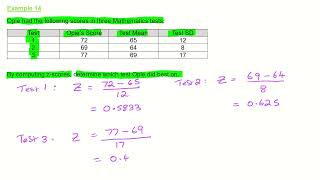 Example 14
Opie had the following scores in three Mathematics tests:
Test Opie's Score Test Mean Test SD
1 72 65 12
2 69 64 8
3 77 69 17
By computing z-scores, determine which test Opie did best on.
Test 1: Z = 72-65 / 12 Test 2: Z = 69-64 / 8
= 0.5833 = 0.625
Test 3. Z = 77-69 / 17
= 0.4